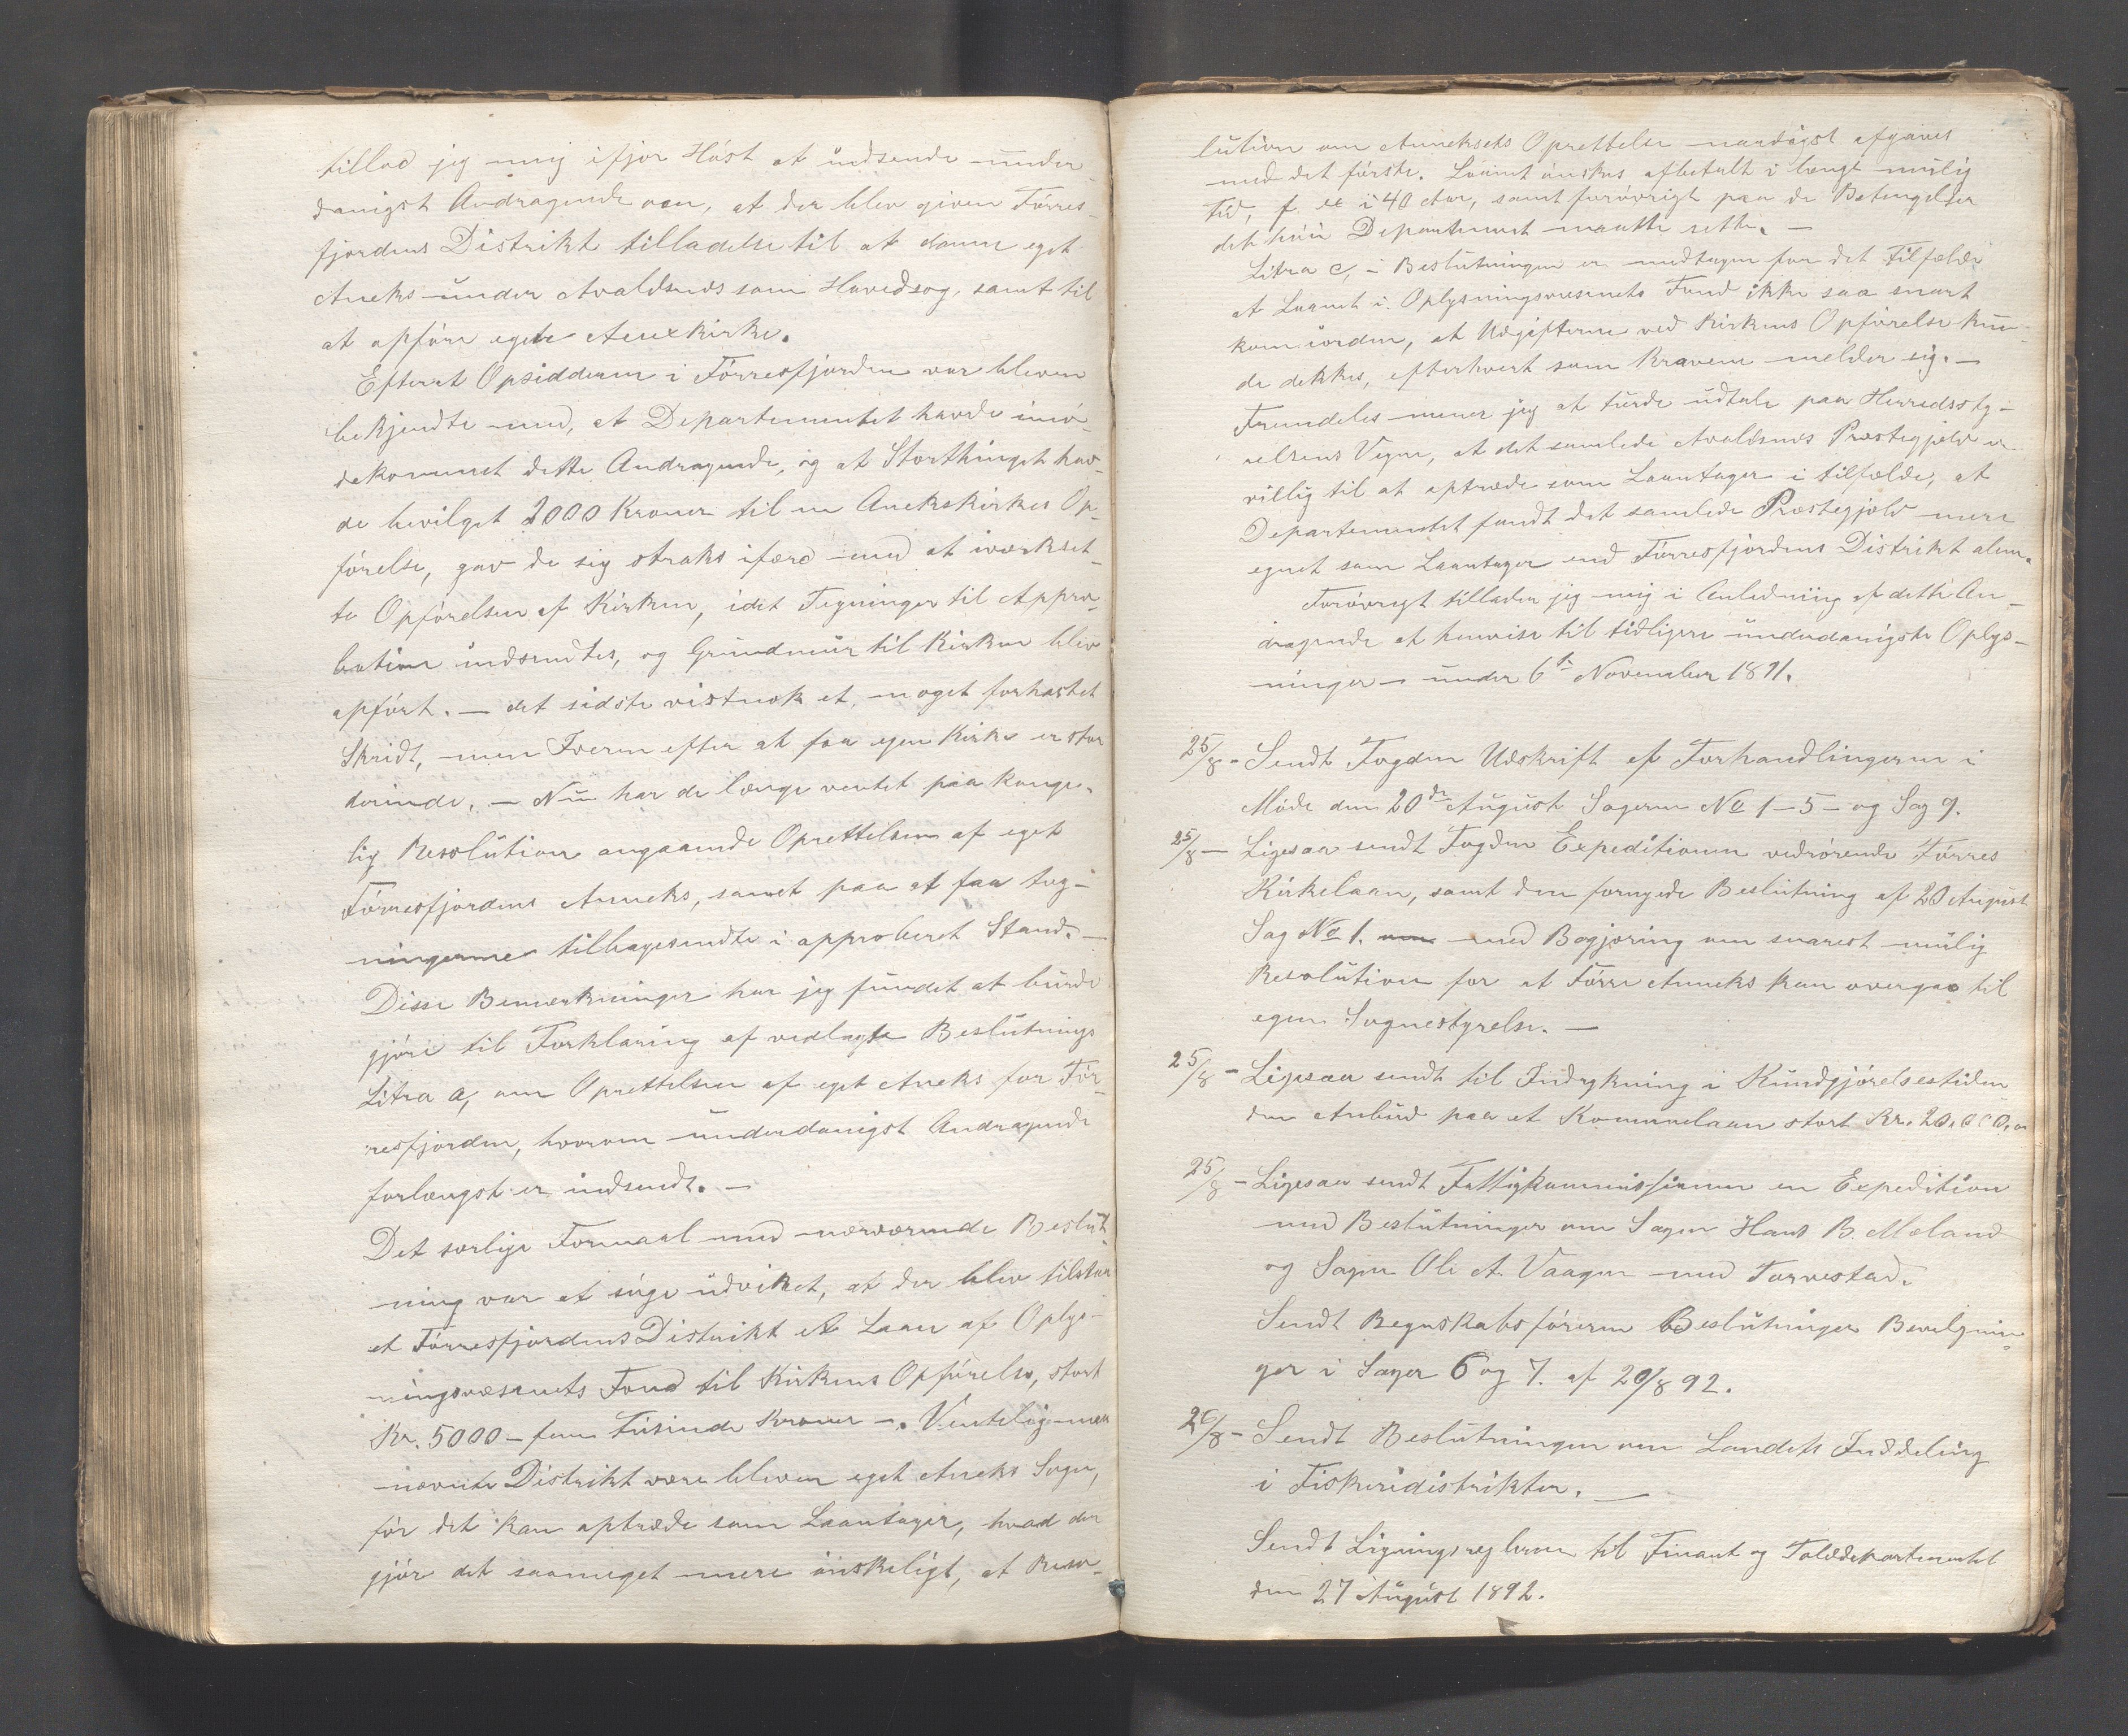 tillod jeg mig ifjor Høst at indsende under-
danigst Andragende om, at der blev given Førres-
fjordens Distrikt tilladelse til at danne eget
Aneks under Avaldsnes som Hovedsog, samt til
at opføre egen Anexkirke.
Efterat Opsidderne i Førresfjorden var bleven
bekjendte med, at Departementet havde imø-
dekommet dette Andragende, og at Storthinget hav-
de bevilget 2000 Kroner til en Anekskirkes Op-
førelse, gav de sig straks ifærd med at iværkset-
te Opførelsen af Kirken, idet Tegninger til Appro-
bation indsendtes, og Grundmur til Kirken blev
opført. — det sidste vistnok et noget forhastet
Skridt, men Iveren efter at faa egen Kirke er stor
derinde. — Nu har de længe ventet paa konge-
lig Resolution angaaende Oprettelsen af eget
Førresfjordens Anneks, samt paa at faa teg-
ningerne tilbagesendte i approberet Stand. —
Disse Bemærkninger har jeg fundet at burde
gjøre til Forklaring af vedlagte Beslutnings
Litra a, om Oprettelsen af eget Aneks for Før-
resfjorden, hvorom underdanigst Andragende
forlængst er indsendt. —
Det særlige Formaal med nærværende Beslut-
ning var at søge udvirket, at der blev tilstaa-
et Førresfjordens Distrikt et Laan af Oplys-
ningsvæsenets Fond til Kirkens Opførelse, stort
Kr. 5000 — fem Tusinde Kroner —. Ventelig maa
nævnte Distrikt være bleven eget Aneks Sogn,
før det kan optræde som Laantager, hvad der
gjør det saameget mere ønskeligt, at Reso-
lution om Anneksets Oprettelse naadigst afgives
med det første. Laanet ønskes afbetalt i længst mulig
Tid, f. ex i 40 Aar, samt forøvrigt paa de Betingelser
det høie Departement maatte sette. —
Litra c, i Beslutningen er medtagen for det Tilfælde
at Laanet i Oplysningsvæsenets Fond ikke saa snart
kom iorden, at Udgifterne ved Kirkens Opførelse kun-
de dekkes, efterhvert som Kravene melder sig. —
Fremdeles mener jeg at turde udtale paa Herredssty-
relsens Vegne, at det samlede Avaldsnes Præstegjeld er
villig til at optræde som Laantager i tilfælde, at
Departementet fandt det samlede Præstegjeld mere
egnet som Laantager end Førresfjordens Distrikt alene.
Forøvrigt tillader jeg mig i Anledning af dette An-
dragende at henvise til tidligere underdanigste Oplys-
ninger — under 6te November 1891.
25/8 - Sendt Fogden Udskrift af Forhandlingerne i
Møde den 20de August Sagerne No 1 — 5 — og Sag 9.
25/8 — Ligesaa sendt Fogden Expeditionen vedrørende Førres
Kirkelaan, samt den fornyede Beslutning af 20 August
Sag No 1. om med Begjæring om snarest mulig
Resolution for at Førre Anneks kan overgaa til
egen Sognestyrelse. —
25/8 - Ligesaa sendt til Indrykning i Kundgjørelsestiden
den Anbud paa et Kommunelaan stort Kr. 20,000,00
25/8 - Ligesaa sendt Fattigkommissionen en Expedition
med Beslutninger om Sagen Hans B. Mæland
og Sagen Ole A. Vaagen med Torvestad.
Sendt Regnskabsføreren Beslutninger Bevilgnin-
ger i Sager 6 og 7. af 20/8 92.
26/8 - Sendt Beslutningen om Landets Inddeling
i Fiskeridistrikter. —
Sendt Ligningsreglerne til Finant og Tolddepartementet
den 27 August 1892.